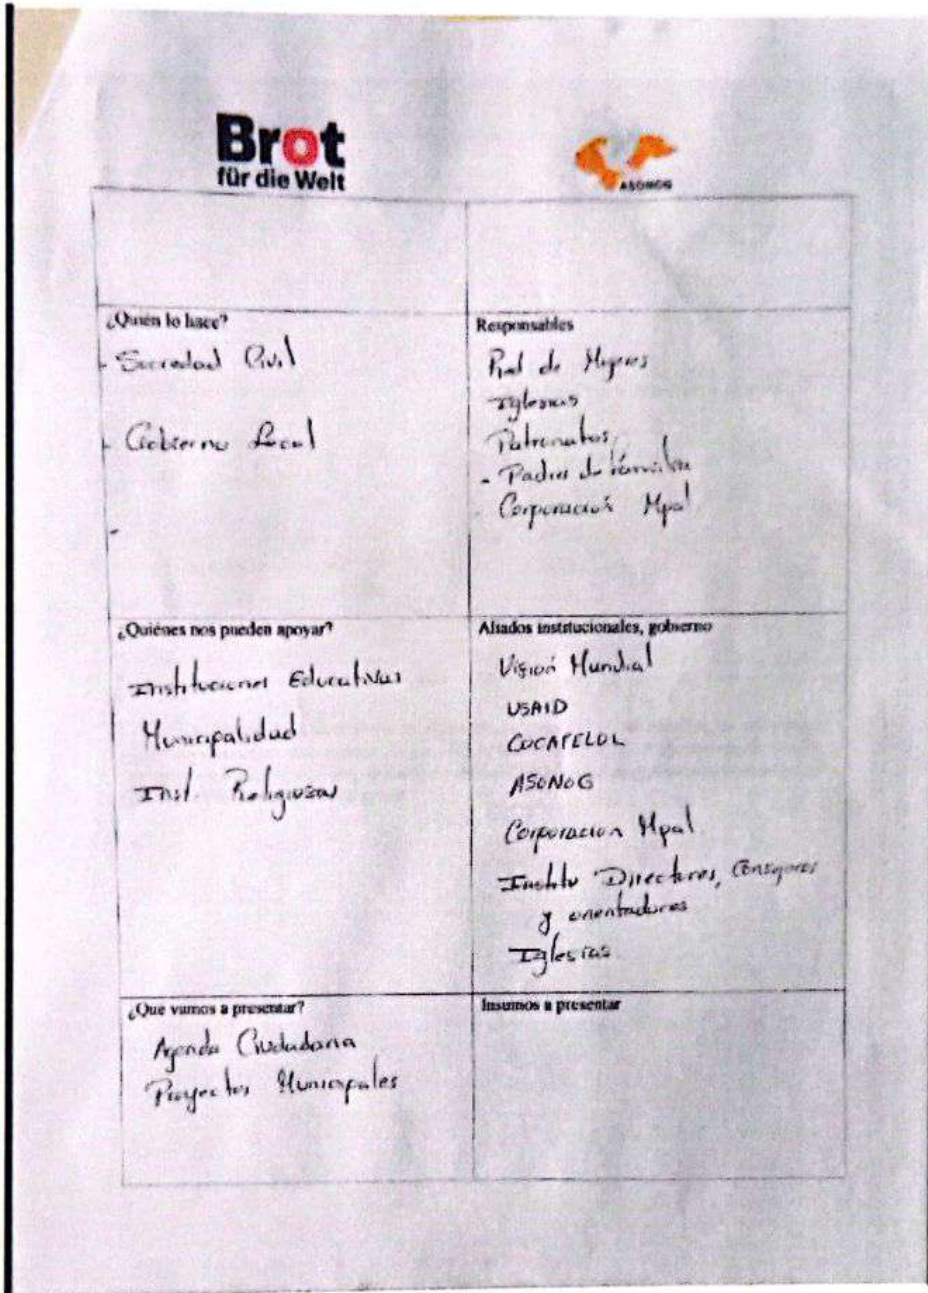 Brot
für die Welt
ASONOG
¿Quién lo hace?
- Sociedad Civil
- Gobierno Local
-
Responsables
Red de Mujeres
Iglesias
Patronatos
- Padres de familia
- Corporación Mpal
¿Quiénes nos pueden apoyar?
Instituciones Educativas
Municipalidad
Inst. Religiosas
Aliados institucionales, gobierno
Visión Mundial
USAID
COCAFELOL
ASONOG
Corporacion Mpal
Institu Directores, Consejeros
y orientadores
Iglesias
¿Que vamos a presentar?
Agenda Ciudadana
Proyectos Municipales
Insumos a presentar